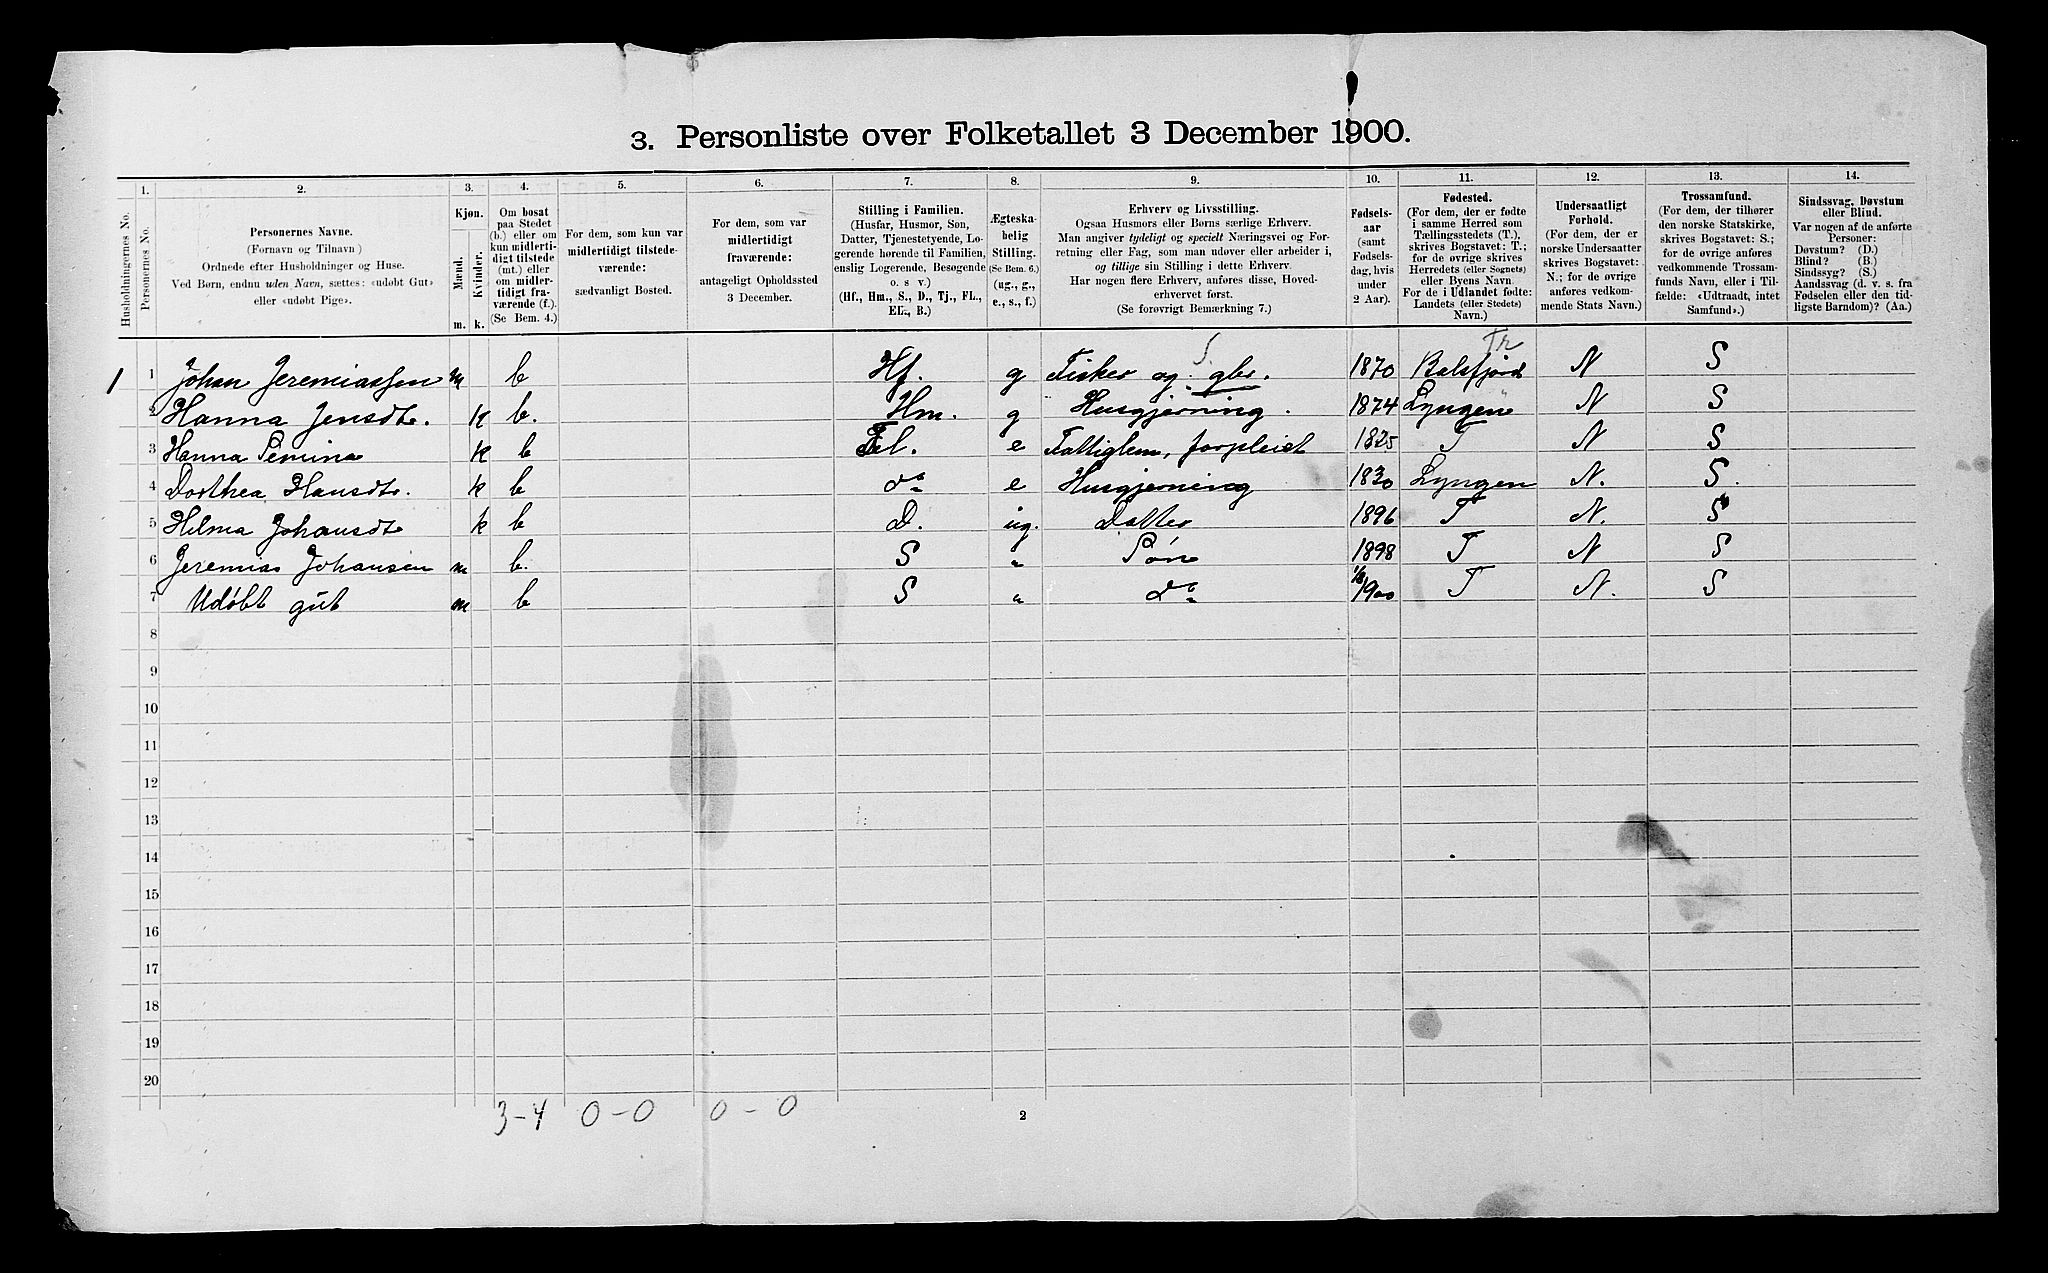 3. Personliste over Folketallet 3 December 1900.
1. 2. 3. 4. 5. 6. 7. 8. 9. 10. 11. 12. 13. 14.
Husholdningernes No.
Personernes No.
Personernes Navne.
(Fornavn og Tilnavn)
Ordnede efter Husholdninger og Huse.
Ved Børn, endnu uden Navn, sættes: «udøbt Gut»
eller «udøbt Pige».
Kjøn.
Mænd.
Kvinder.
m. k.
Om bosat
paa Stedet
(b.) eller om
kun midlerti-
digt tilstede
(mt.) eller
om midler-
tidigt fra-
værende (f.).
(Se Bem. 4.)
For dem, som kun var
midlertidigt tilstede-
værende:
sædvanligt Bosted.
For dem, som var
midlertidigt
fraværende:
antageligt Opholdssted
3 December.
Stilling i Familien.
(Husfar, Husmor, Søn,
Datter, Tjenestetyende, Lo-
gerende hørende til Familien,
enslig Logerende, Besøgende
o. s v.)
(Hf., Hm., S., D., Tj., FL.,
EL., B.)
Ægteska-
belig
Stilling.
(Se Bem. 6.)
(ug., g.,
e., s., f.)
Erhverv og Livsstilling.
Ogsaa Husmors eller Børns særlige Erhverv.
Man angiver tydeligt og specielt Næringsvei og For-
retning eller Fag, som man udøver eller arbeider i,
og tillige sin Stilling i dette Erhverv.
Har nogen flere Erhverv, anføres disse, Hoved-
erhvervet først.
(Se forøvrigt Bemærkning 7.)
Fødsels-
aar
(samt
Fødsels-
dag, hvis
under
2 Aar).
Fødested.
(For dem, der er fødte
i samme Herred som
Tællingsstedets (T.),
skrives Bogstavet: T.;
for de øvrige skrives
Herredets (eller Sognets)
eller Byens Navn.
For de i Udlandet fødte:
Landets (eller Stedets)
Navn.)
Undersaatligt
Forhold.
(For dem, der er
norske Undersaatter
skrives Bogstavet:
N.; for de øvrige
anføres vedkom-
mende Stats Navn.)
Trossamfund.
(For dem, der tilhører
den norske Statskirke,
skrives Bogstavet: S.;
for de øvrige anføres
vedkommende Trossam-
funds Navn, eller i Til-
fælde: «Udtraadt, intet
Samfund».)
Sindssvag, Døvstum
eller Blind.
Var nogen af de anførte
Personer:
Døvstum? (D.)
Blind? (B.)
Sindssyg? (S.)
Aandssvag (d. v. s. fra
Fødselen eller den tid-
ligste Barndom)? (Aa.)
Tr
S.
1 1 Johan Jeremiassen m b Hf. g Fisker og gbr. 1870 Balsfjord N S
2 Hanna Jensdt. k b. Hm. g Husgjerning. 1874 Lyngen N S
3 Hanna Pemina k b e Fattiglem, forpleiet 1825 T N S
4 Dorthea Hansdt. k b do e Husgjerning 1830 Lyngen N. S.
5 Helma Johansdt k b D. ug. Datter 1896 T N. S
6 Jeremias Johansen m b. S " Søn 1898 T N S
7 Udøbt gut m b S " do 1/8 1900 T N. S
8
9
10
11
12
13
14
15
16
17
18
19
20
3-4 0-0 0-0
2